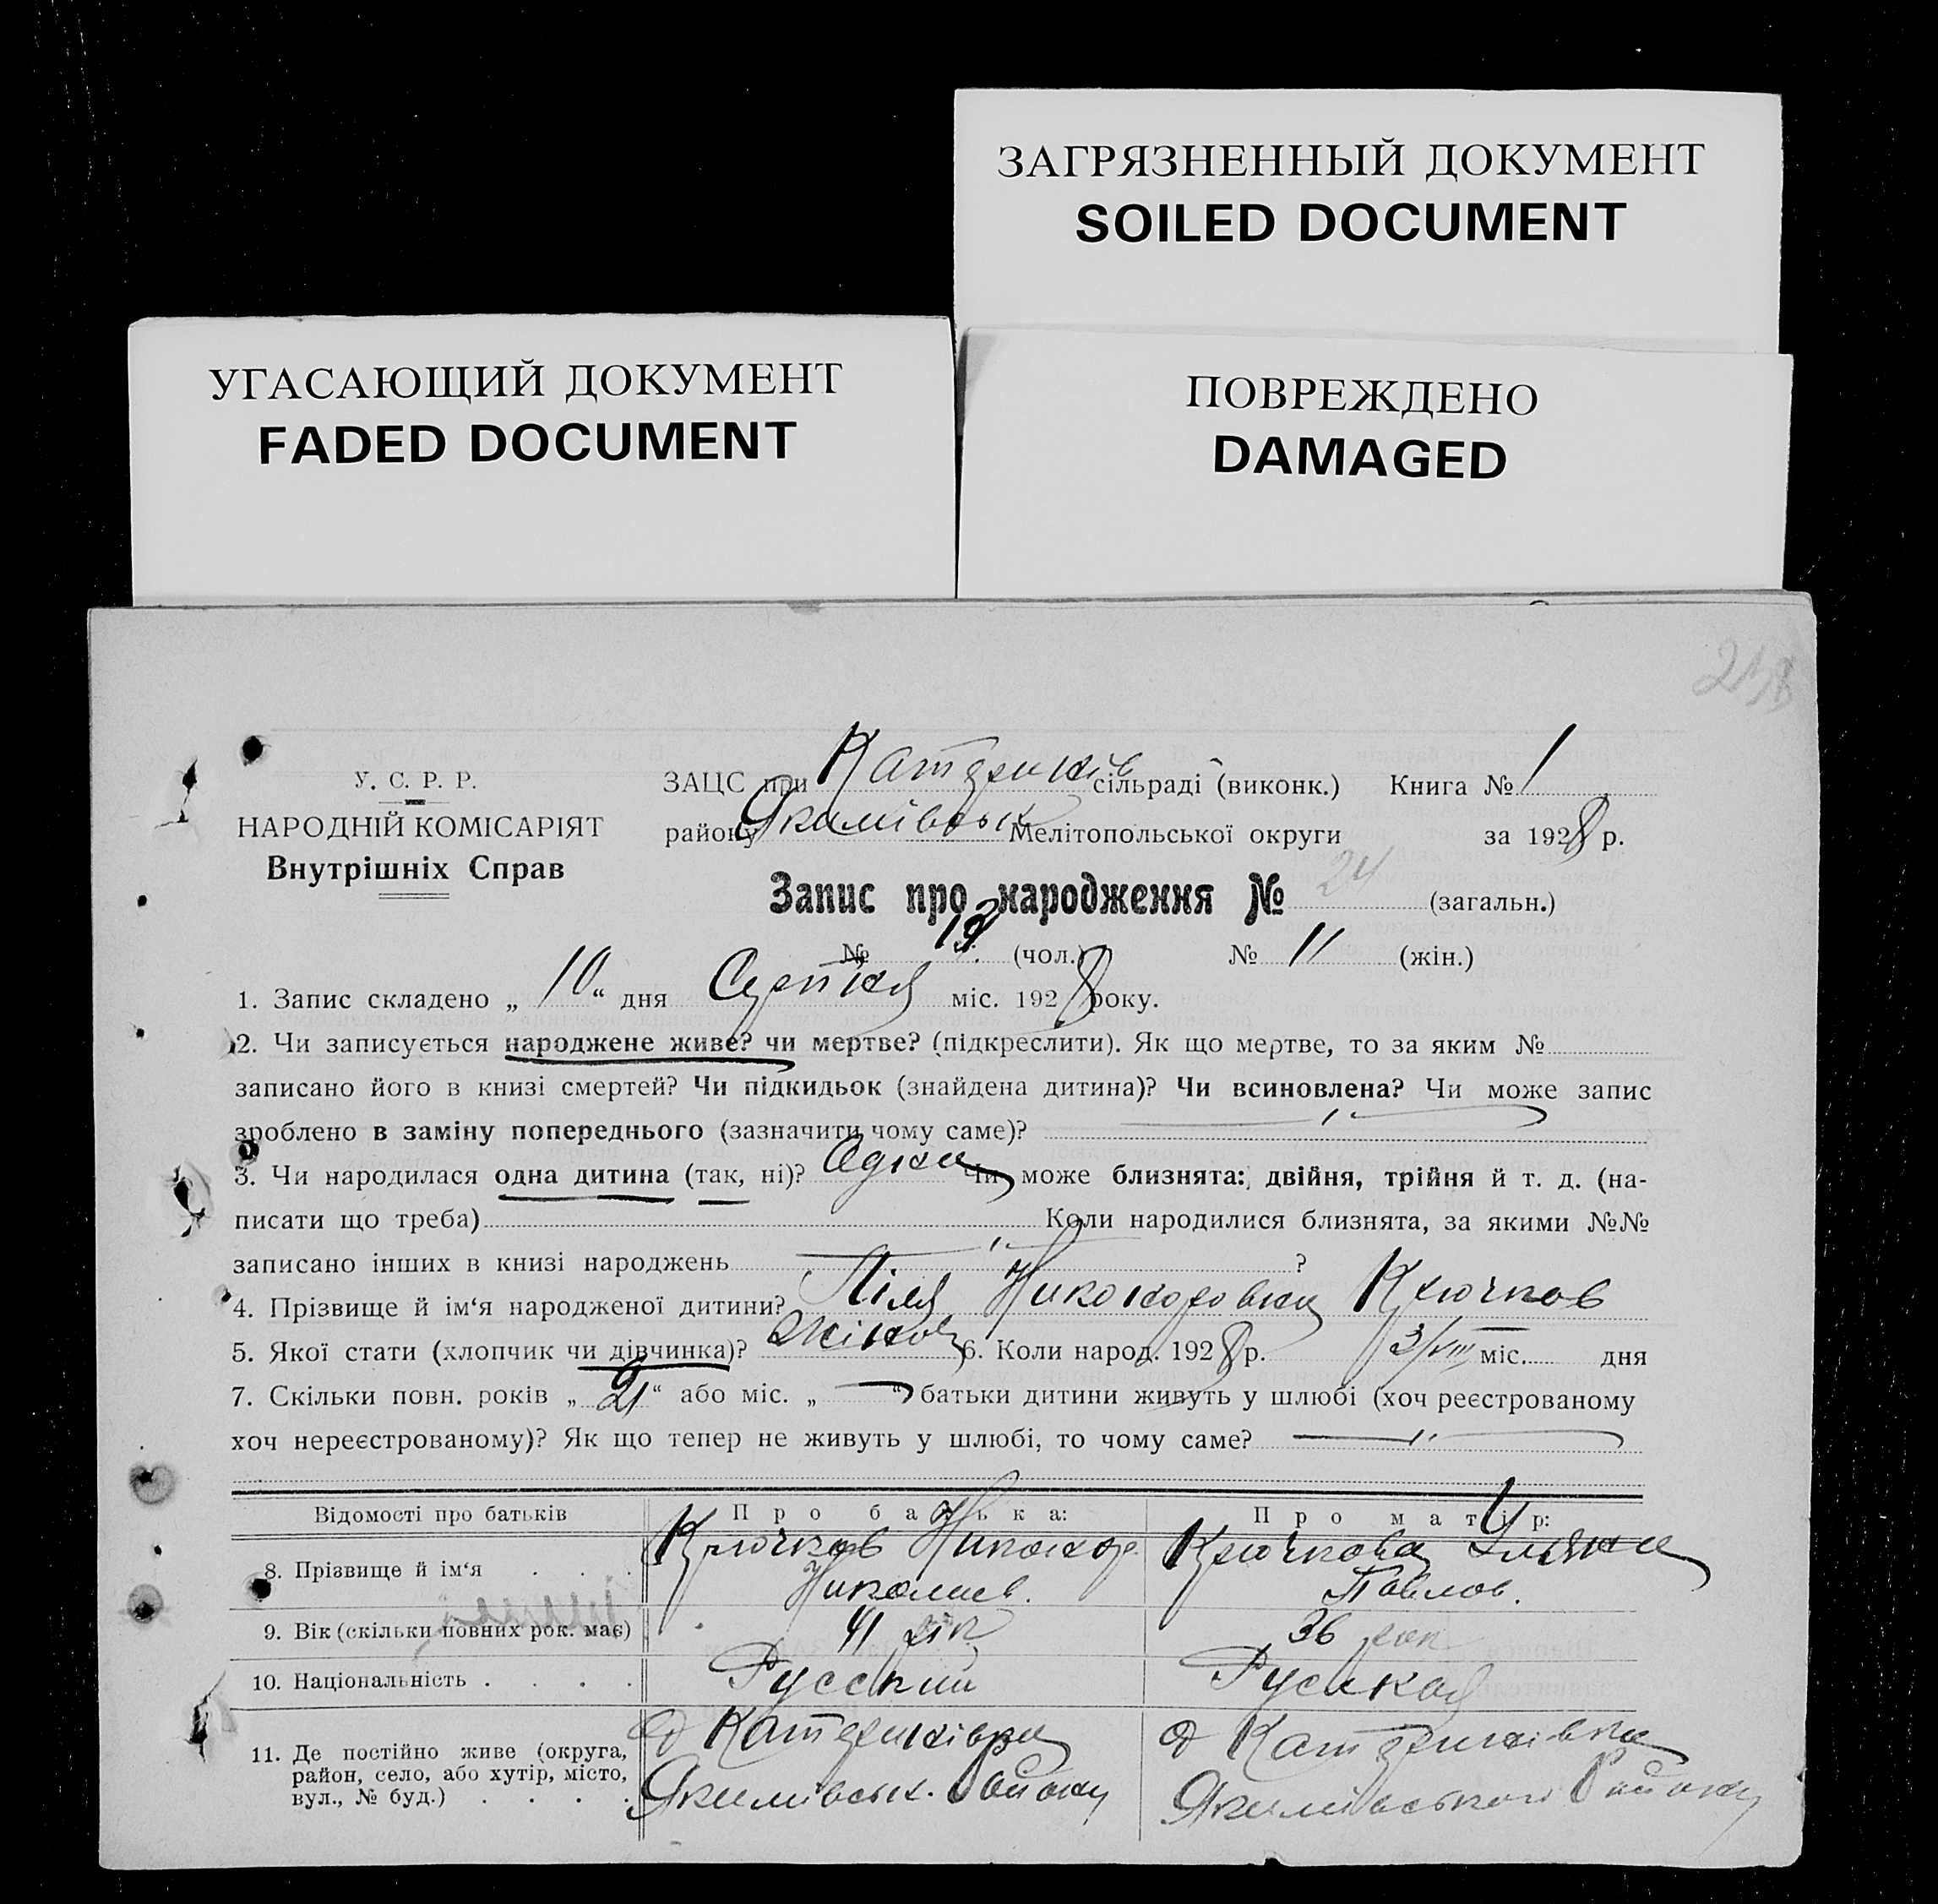 ЗАГРЯЗНЕННЫЙ ДОКУМЕНТ
SOILED DOCUMENT
УГАСАЮЩИЙ ДОКУМЕНТ
FADED DOCUMENT
ПОВРЕЖДЕНО
DAMAGED
У. С. Р. Р.
НАРОДНІЙ КОМІСАРІЯТ
Внутрішніх Справ
ЗАЦС при сільраді (виконк.) Книга № 1
району Якимівськ Мелітопольської округи за 1928 р.
Запис про народження № 24 (загальн.)
№ (чол.) № 11 (жін.)
1. Запис складено „ 10 “ дня Серпня міс. 1928 року.
2. Чи записується народжене живе? чи мертве? (підкреслити). Як що мертве, то за яким №
записано його в книзі смертей? Чи підкидьок (знайдена дитина)? Чи всиновлена? Чи може запис
зроблено в заміну попереднього (зазначити чому саме)?
3. Чи народилася одна дитина (так, ні)? Одна Чи може близнята: двійня, трійня й т. д. (на-
писати що треба) Коли народилися близнята, за якими №№
записано інших в книзі народжень ?
4. Прізвище й ім‘я народженої дитини? Ліля Никоноровна Крючков
5. Якої стати (хлопчик чи дівчинка)? 6. Коли народ. 1928 р. 3/VIII міс. дня
7. Скільки повн. років „ 21 “ або міс. „ — “ батьки дитини живуть у шлюбі (хоч реєстрованому
хоч нереєстрованому)? Як що тепер не живуть у шлюбі, то чому саме?
Відомості про батьків Про батька: Про матір:
8. Прізвище й ім‘я Крючков Никонор Николаев. Крючкова Ульяна Павлов.
9. Вік (скільки повних рок. має) 41 рік 36 рок
10. Національність Русский Руская
11. Де постійно живе (округа,
район, село, або хутір, місто,
вул., № буд.)
Якимівськ. Району
Якимівського Району